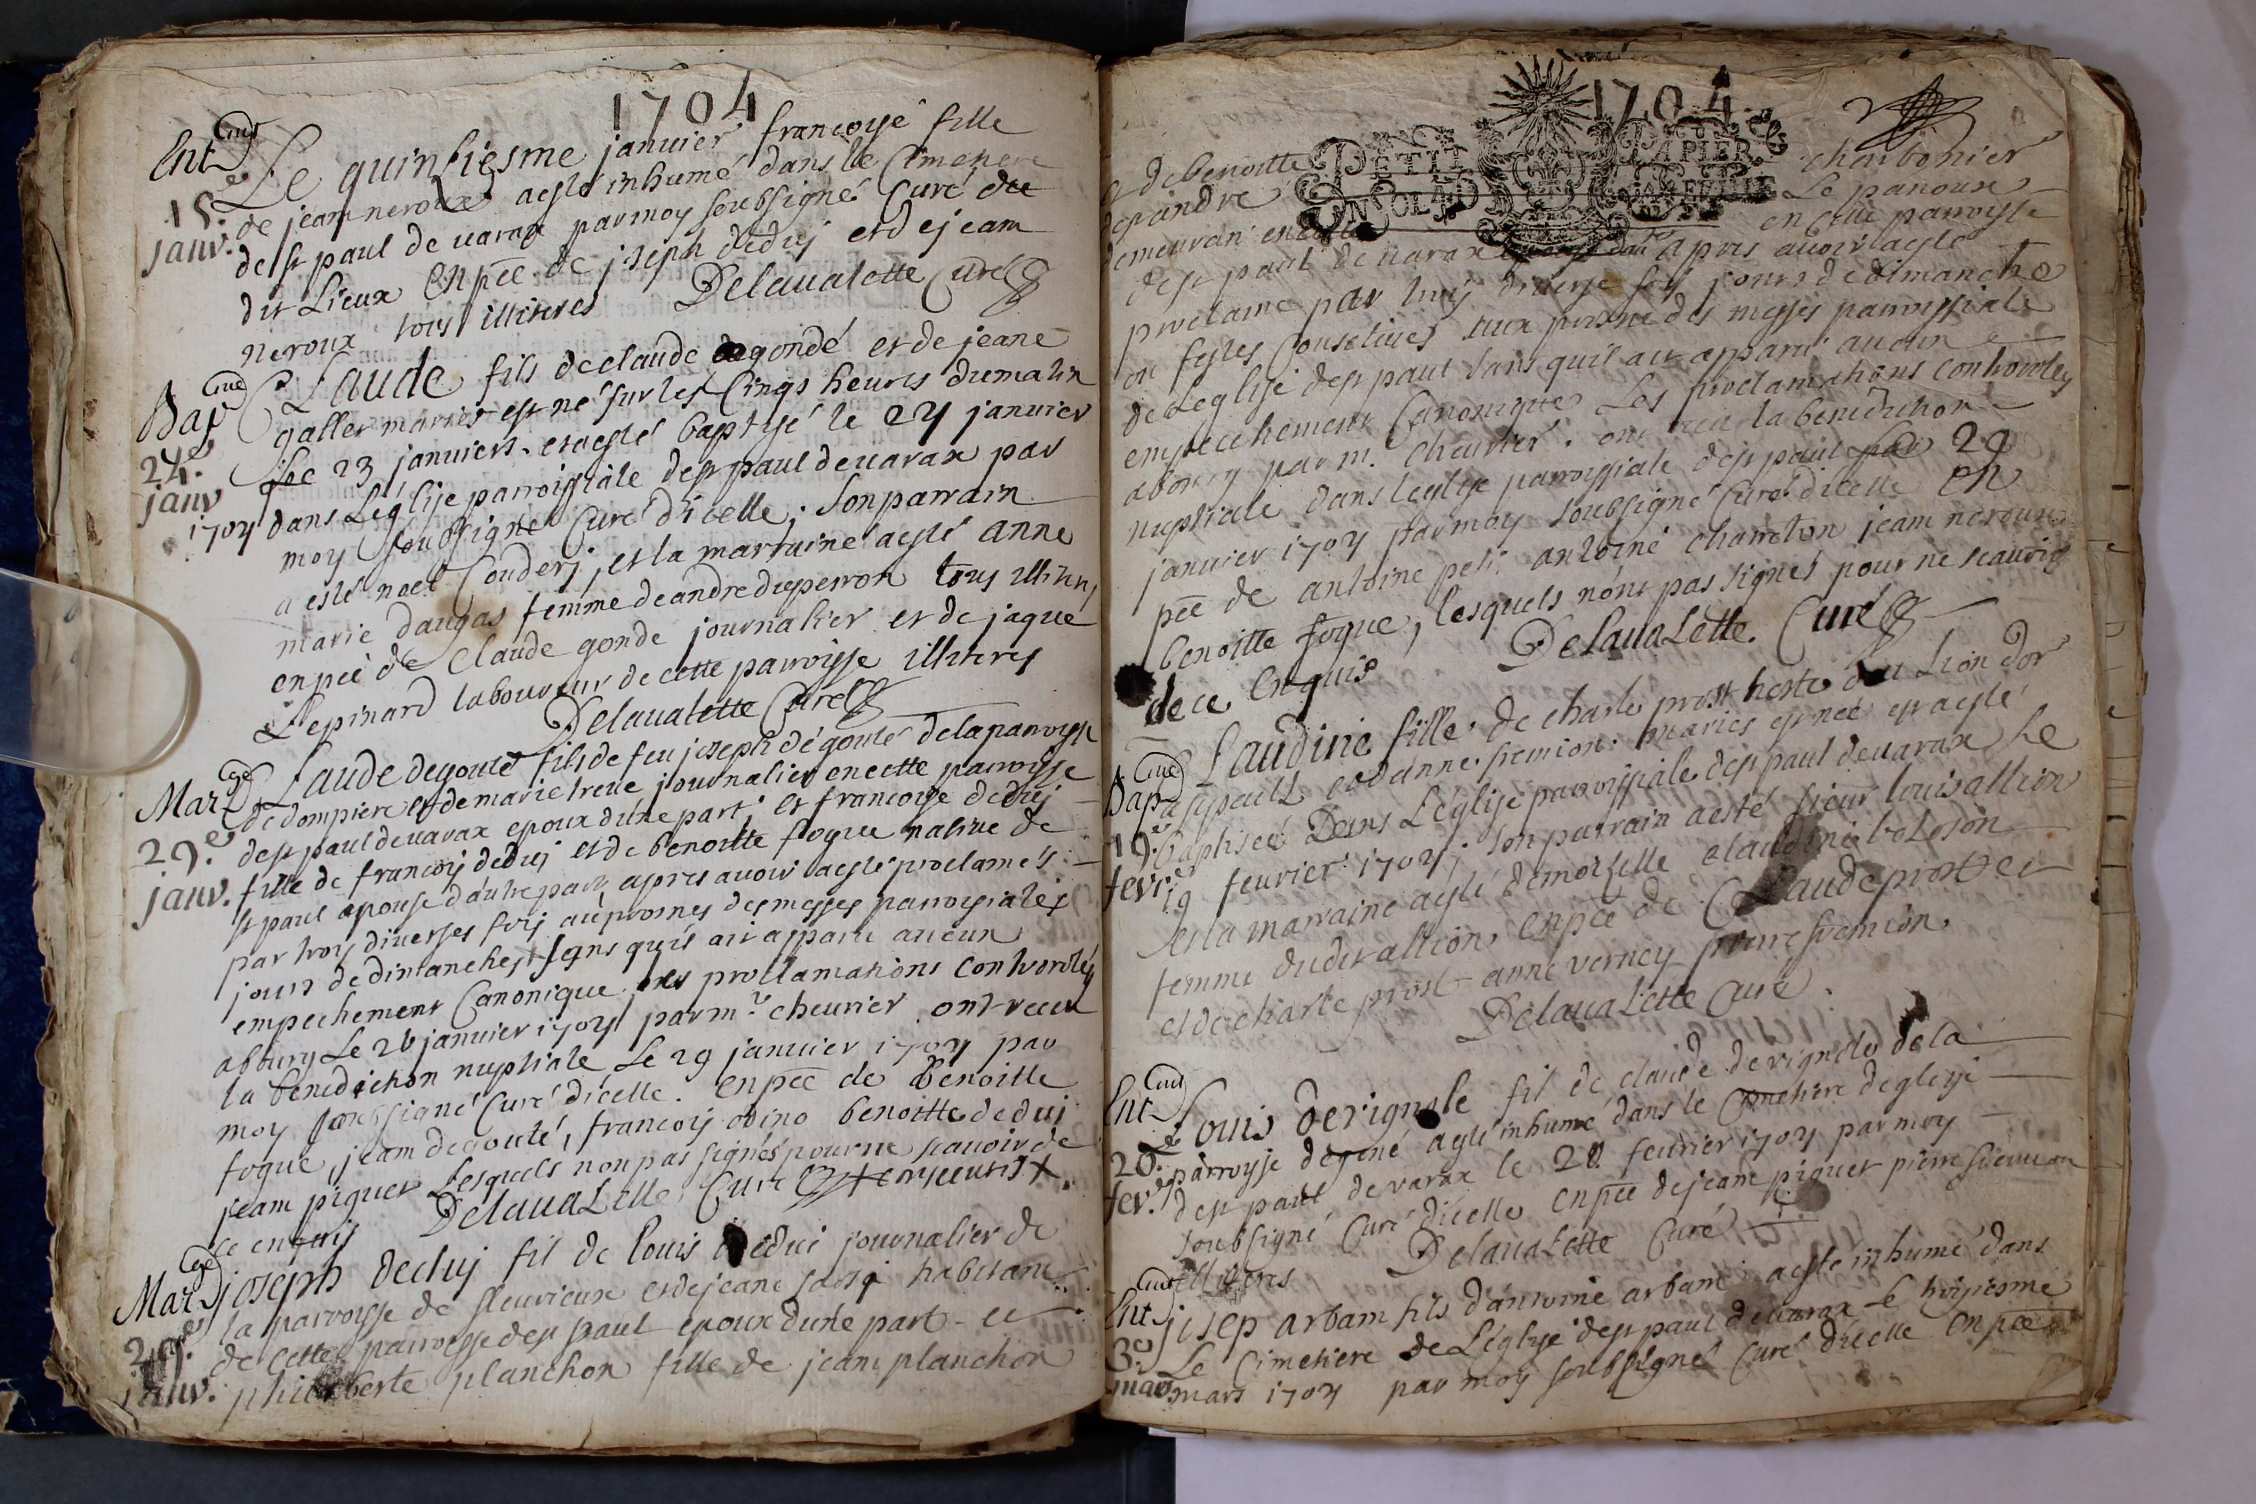 1704
Ent
15.e
janv.
Le quinziesme janvier françoyse fille
de jeam neroux a esté inhumé dans le Cimetiere
de st paul de varax par moy soubsigné Curé du
dit Lieux En pce de joseph deduj et de jeam
neroux tous illiteres Delavalette Curé
Bap
24.e
janv
1704
Claude fils de claude gondé et de jeane
galler mariés est né sur les Cinqs heures du matin
le 23 janviers et a esté baptysé le 24 janvier
dans L'églisse parroissiale de st paul de varax par
moy soubsigné Curé d'icelle; son parrain
a esté noel Couderj, et la marraine a esté anne
marie daugas femme de andre duperron tous illiteres
en pce de Claude gonde journalier et de jaque
Lepinard laboureur de cette parroysse illiteres
Delavalette Curé
Mar
29.e
janv.
Claude degouté fils de feu joseph dégouté de la parroysse
de dompiere et de marie treve journalier en cette parroysse
de st paul de varax epoux d'une part; et françoyse deduj
fille de françoy deduj et de benoitte fogue native de
st paul epouse d'autre part apres avoir a esté proclamés
par trois diverses fois au prosnes des messes parroisiales
jours de dimanches sans qu'il ait apparu aucun
empechement Canonique, les proclamations controrolés
a bourg Le 26 janvier 1704 par mr. chevrier ont receu
la benediction nuptiale Le 29 janvier 1704 par
moy soubsigné Curé d'icelle. en pce de benoitte
fogue, jeam degouté, françois benoitte deduj
jeam piquet Lesquels n'on pas signés pour ne scavoir de
ce enquis Delavalette Curé
Mar
29.e
janv.
joseph deduj fil de Louis dedui journalier de
la parroysse de fleurieux et de jeane habitant
de cette parroisse de st paul epoux d'une part et
philiberte planchon fille de jeam planchon
1704
PETIT PAPIER
et de benoitte charbonier
de st andre Le panoux
demeuran en cette en cette parroysse
de st paul de varax apres avoir a esté
proclamé par trois diverse fois jours de dimanche
ou festes Consetives aux prosne des messes parroissiale
de L'eglise de st paul sans qu'il ait apparu aucun
empechement Canonique Les proclamations controrolés
a bourg par m. chevrier. ont receu la benediction
nuptiale dans l'eglise parroyssiale de st paul le 29
janvier 1704 par moy soubsigné Curé d'icelle en
pce de antoine peti, antoine charreton jeam neroux
benoitte fogue, lesquels n'ont pas signés pour ne scavoir
de ce enquis Delavalette. Curé
Bap
19.e
fevr.
Claudine fille de charle prost hoste du Lion dor
a st paul et d'anne fremion mariés est neé et a esté
baptiseé Dans L'eglise parroissiale de st paul de varax Le
19 fevrier 1704; son parrain a esté sieur louis allion
et la marraine a esté demoiselle claudine boloson
femme dudit allion, en pce de Claude prost et
et de charle prost anne verney pierre fremion.
Delavalette Curé
Ent
20.e
fev.
Louis Devignole fil de claude devignole de la
parroysse de a esté inhumé dans le Cimetiere de gleyse
de st paul de varax le 20 fevrier 1704 par moy
soubsigné Curé d'icelle en pce de jeam piquet pierre
illiteres Delavalette Curé
Ent
3.e
mar
josep arbam fils d'antoine arbam a esté inhumé dans
Le Cimetiere de L'églyse de st paul de varax Le troysiesme
mars 1704 par moy soubsigné Curé d'icelle en pce